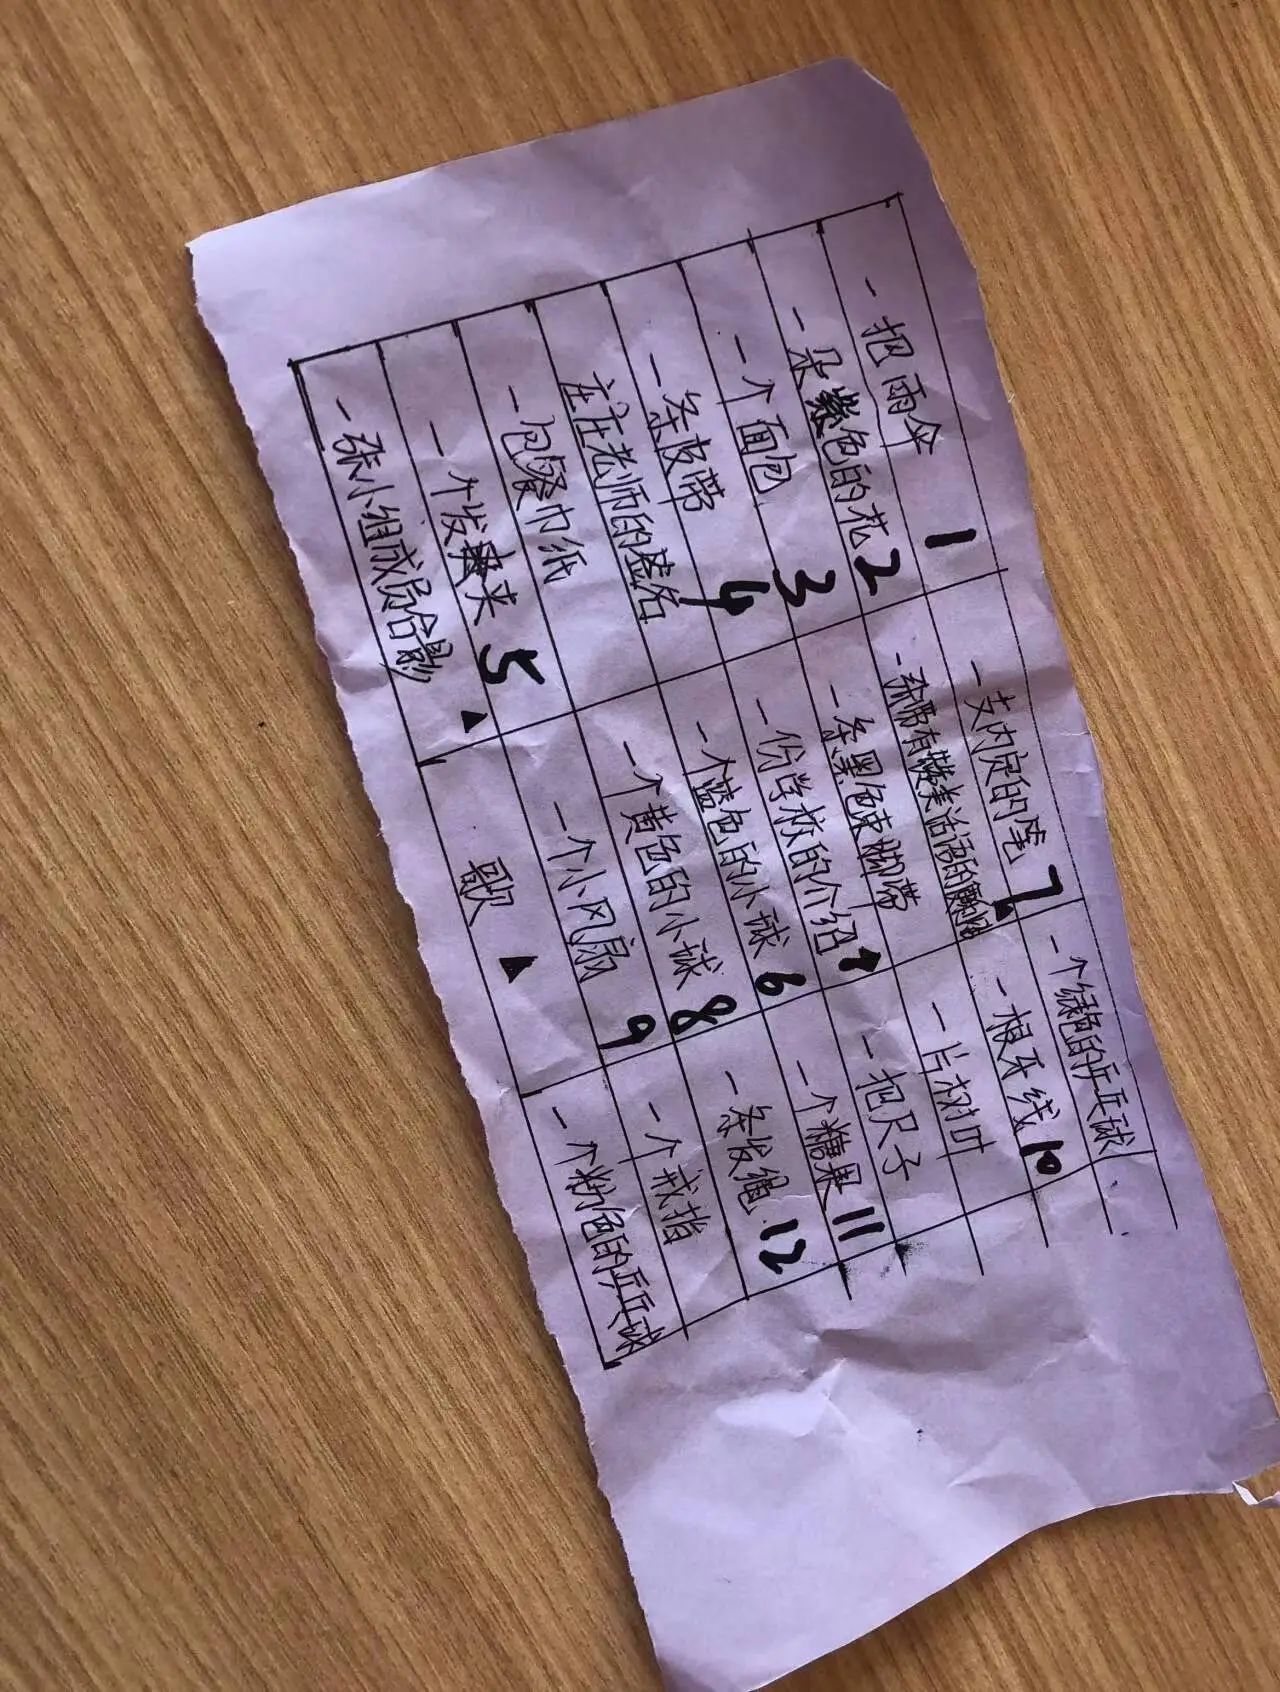 一把雨伞 1 一支内定的笔 7 一个绿色的乒乓球
一朵紫色的花 2 一张带有赞美话语的 一根牙线 10
一个面包 3 一条黑色束脚带 一片树叶
一条皮带 4 一份学校的介绍 一把尺子
老师的签名 一个蓝色的小球 6 一个糖果 11
一包餐巾纸 一个黄色的小球 8 一条发绳 12
一个发夹 5 一个小风扇 9 一个戒指
一张小组成员合影 ▲ 歌 ▲ 一个粉色的乒乓球